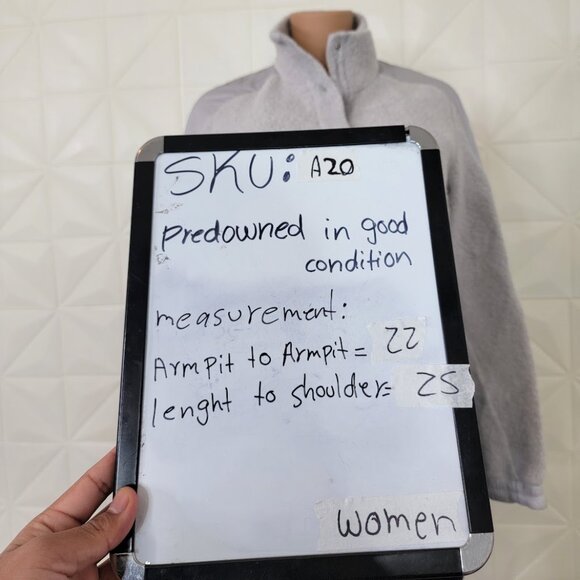 SKU: A20
predowned in good
condition
measurement:
Armpit to Armpit= 22
lenght to shoulder= 25
women